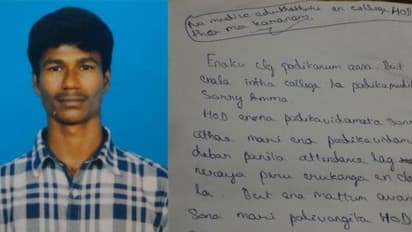 Na mudive eduthathuku en college HOD
than ma karanam.
Enaku clg padikanum aasa. But
ennala intha college la padikamudi
Sorry Amma
HOD enena padikavidamata Sonn
athae mari ena padikavidama
debar panila attendance lag
neraya peru erukanga en cla
la. But ena mattum
Sona mari palivangita HOD